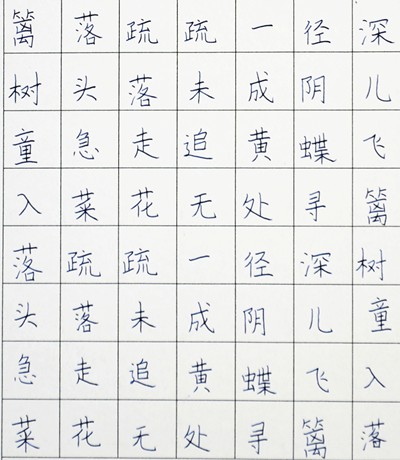 篱落疏疏一径深
树头落未成阴儿
童急走追黄蝶飞
入菜花无处寻篱
落疏疏一径深树
头落未成阴儿童
急走追黄蝶飞入
菜花无处寻篱落